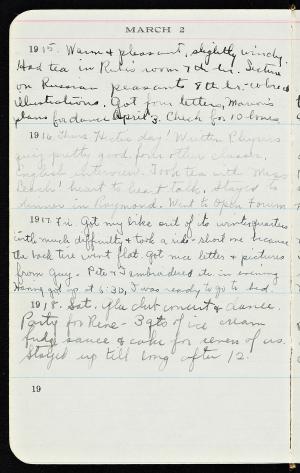 MARCH 2
1915. Warm & pleasant, slightly windy.
Had tea in Ruth's room 7th hr. Lecture
on Russian peasants 8th hr. colored
illustrations. Got four letters,
plans for dance April 3. Check for 10 bones
1916. Thurs. Hectic day! Written
quiz pretty good, for other classes.
English interview. Took tea with Miss
heart to heart talk. Stayed to
dinner in Raymond. Went to Open Forum
1917. Fri. Got my bike out of its winter quarters
with much difficulty & took a ride - short one because
the back tire went flat. Got nice letter & pictures
from Guy. Pete & I embroidered in evening
got up at 5:30, I was ready to go to bed.
1918. Sat. Glee club concert & dance.
Party for Rene - 3 qts of ice cream
fudge sauce & cake for seven of us.
Stayed up till long after 12.
19